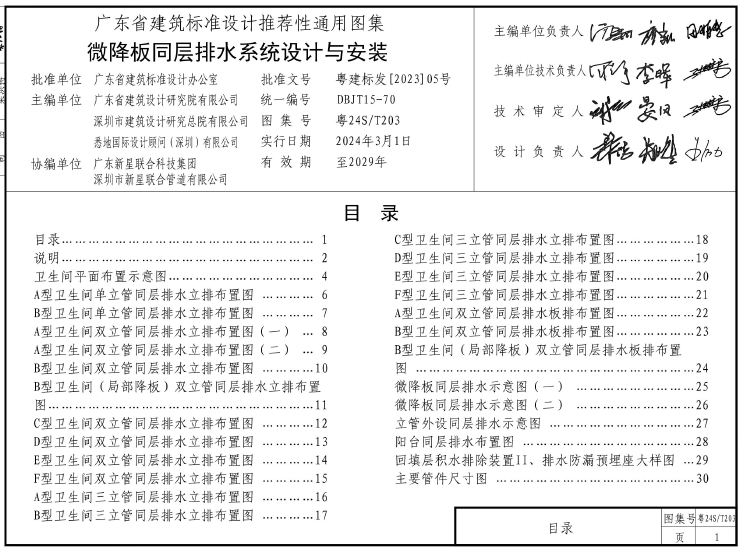 广东省建筑标准设计推荐性通用图集
微降板同层排水系统设计与安装
批准单位 广东省建筑标准设计办公室 批准文号 粤建标发[2023]05号
主编单位 广东省建筑设计研究院有限公司 统一编号 DBJT15-70
深圳市建筑设计研究总院有限公司 图集号 粤24S/T203
悉地国际设计顾问(深圳)有限公司 实行日期 2024年3月1日
协编单位 广东新星联合科技集团 有效期 至2029年
深圳市新星联合管道有限公司
主编单位负责人
主编单位技术负责人
技术审定人
设计负责人
目 录
目录……………………………………………… 1
说明……………………………………………… 2
卫生间平面布置示意图………………………… 4
A型卫生间单立管同层排水立排布置图 ……… 6
B型卫生间单立管同层排水立排布置图 ……… 7
A型卫生间双立管同层排水立排布置图(一) … 8
A型卫生间双立管同层排水立排布置图(二) … 9
B型卫生间双立管同层排水立排布置图 ………10
B型卫生间(局部降板)双立管同层排水立排布置
图………………………………………………11
C型卫生间双立管同层排水立排布置图 ………12
D型卫生间双立管同层排水立排布置图 ………13
E型卫生间双立管同层排水立排布置图 ………14
F型卫生间双立管同层排水立排布置图 ………15
A型卫生间三立管同层排水立排布置图 ………16
B型卫生间三立管同层排水立排布置图 ………17
C型卫生间三立管同层排水立排布置图…………18
D型卫生间三立管同层排水立排布置图…………19
E型卫生间三立管同层排水立排布置图…………20
F型卫生间三立管同层排水立排布置图…………21
A型卫生间双立管同层排水板排布置图…………22
B型卫生间双立管同层排水板排布置图…………23
B型卫生间(局部降板)双立管同层排水板排布置
图 ………………………………………………24
微降板同层排水示意图(一) …………………25
微降板同层排水示意图(二) …………………26
立管外设同层排水示意图 ………………………27
阳台同层排水布置图 ……………………………28
回填层积水排除装置II、排水防漏预埋座大样图 …29
主要管件尺寸图 …………………………………30
目录 图集号 粤24S/T203
页 1